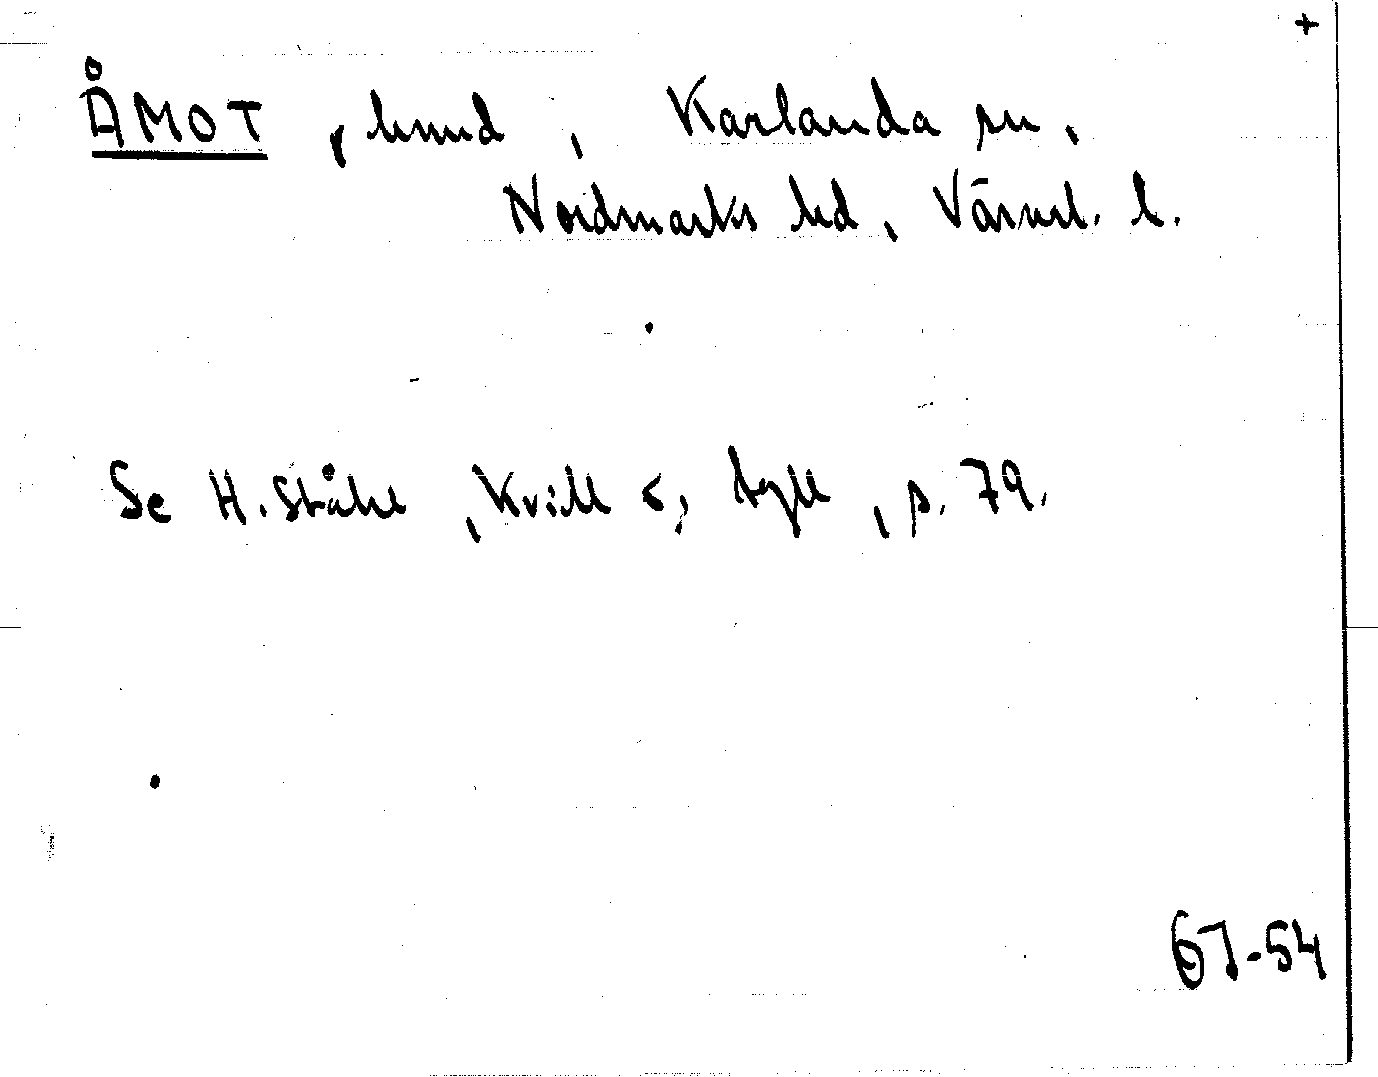 +
ÅMOT, hmd, Karlanda sn,
Nordmarks hd, Värml. l.
Se H. Ståhl, Kvill o, byll, s. 79.
67-54